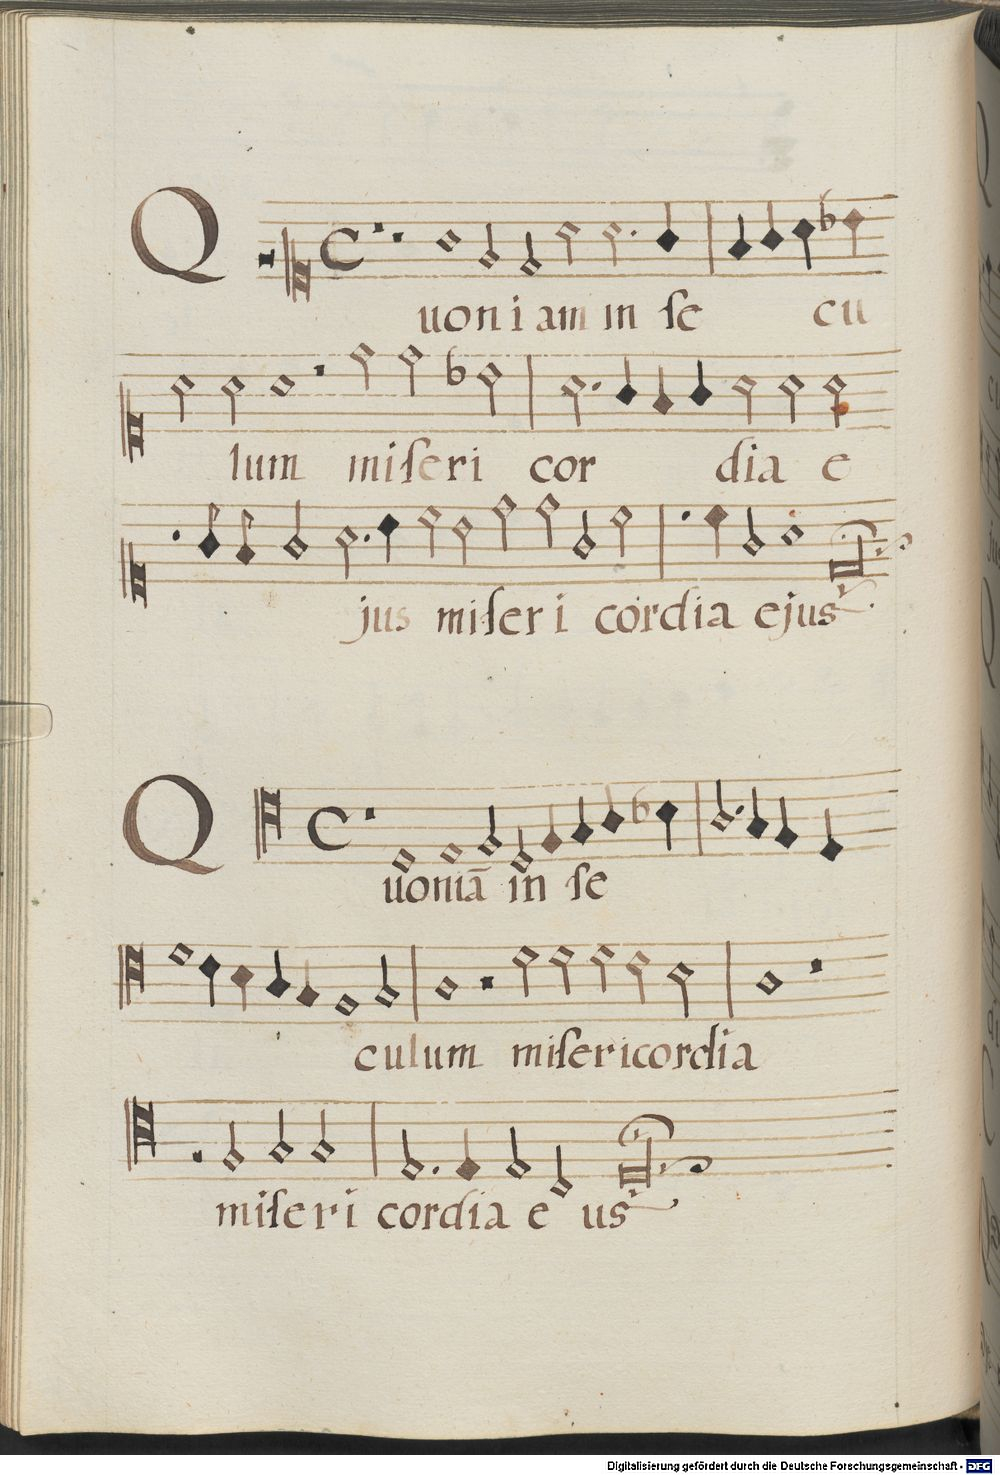 Quoniam in se cu
lum miſeri cor dia e
jus miſeri cordia ejus
Quoniā in se
culum miſericordia
miſeri cordia e us
Digitalisierung gefördert durch die Deutsche Forschungsgemeinschaft - DFG